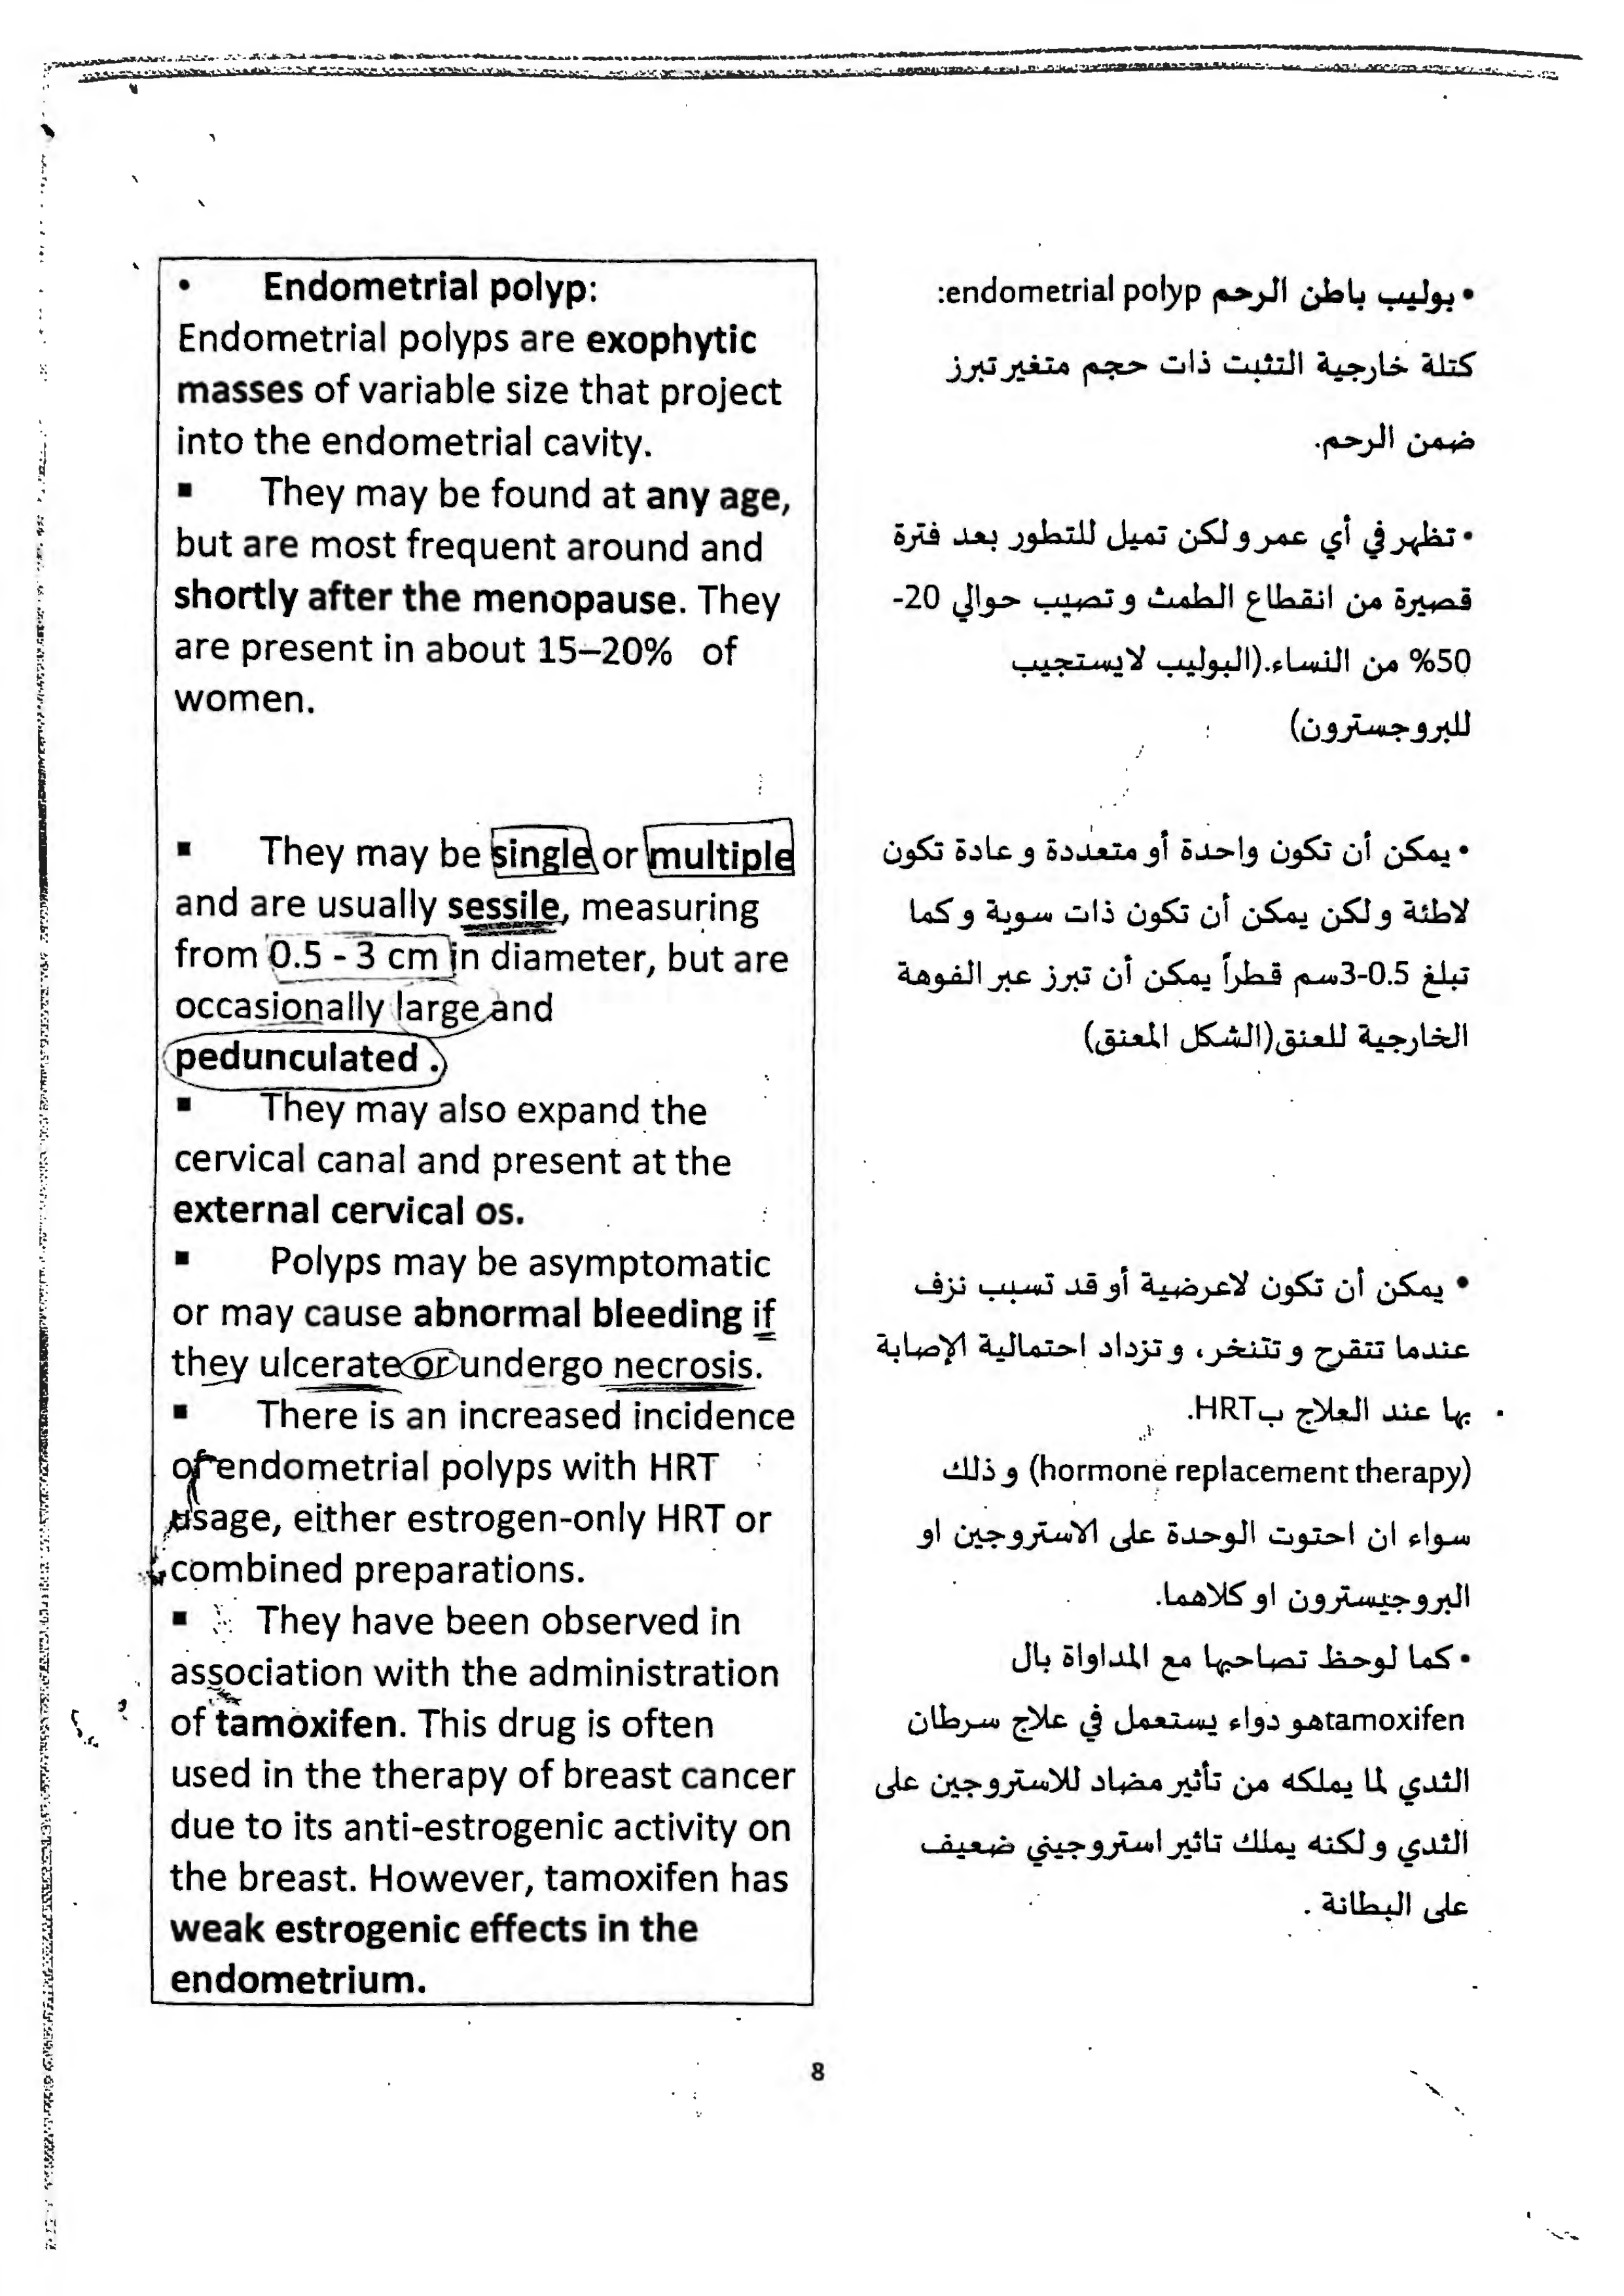 • Endometrial polyp:
Endometrial polyps are exophytic
masses of variable size that project
into the endometrial cavity.
▪ They may be found at any age,
but are most frequent around and
shortly after the menopause. They
are present in about 15–20% of
women.
▪ They may be single or multiple
and are usually sessile, measuring
from 0.5 - 3 cm in diameter, but are
occasionally large and
pedunculated .
▪ They may also expand the
cervical canal and present at the
external cervical os.
▪ Polyps may be asymptomatic
or may cause abnormal bleeding if
they ulcerate or undergo necrosis.
▪ There is an increased incidence
of endometrial polyps with HRT
usage, either estrogen-only HRT or
combined preparations.
▪ They have been observed in
association with the administration
of tamoxifen. This drug is often
used in the therapy of breast cancer
due to its anti-estrogenic activity on
the breast. However, tamoxifen has
weak estrogenic effects in the
endometrium.
• بوليب باطن الرحم endometrial polyp:
كتلة خارجية التثبت ذات حجم متغير تبرز
ضمن الرحم.
• تظهر في أي عمر و لكن تميل للتطور بعد فترة
قصيرة من انقطاع الطمث و تصيب حوالي 20-
50% من النساء.(البوليب لايستجيب
للبروجسترون)
• يمكن أن تكون واحدة أو متعددة و عادة تكون
لاطئة و لكن يمكن أن تكون ذات سوية و كما
تبلغ 0.5-3سم قطراً يمكن أن تبرز عبر الفوهة
الخارجية للعنق(الشكل المعنق)
• يمكن أن تكون لاعرضية أو قد تسبب نزف
عندما تتقرح و تتنخر، و تزداد احتمالية الإصابة
بها عند العلاج بHRT.
(hormone replacement therapy) و ذلك
سواء ان احتوت الوحدة على الاستروجين او
البروجيسترون او كلاهما.
• كما لوحظ تصاحبها مع المداواة بال
tamoxifenهو دواء يستعمل في علاج سرطان
الثدي لما يملكه من تأثير مضاد للاستروجين على
الثدي و لكنه يملك تاثير استروجيني ضعيف
على البطانة .
8